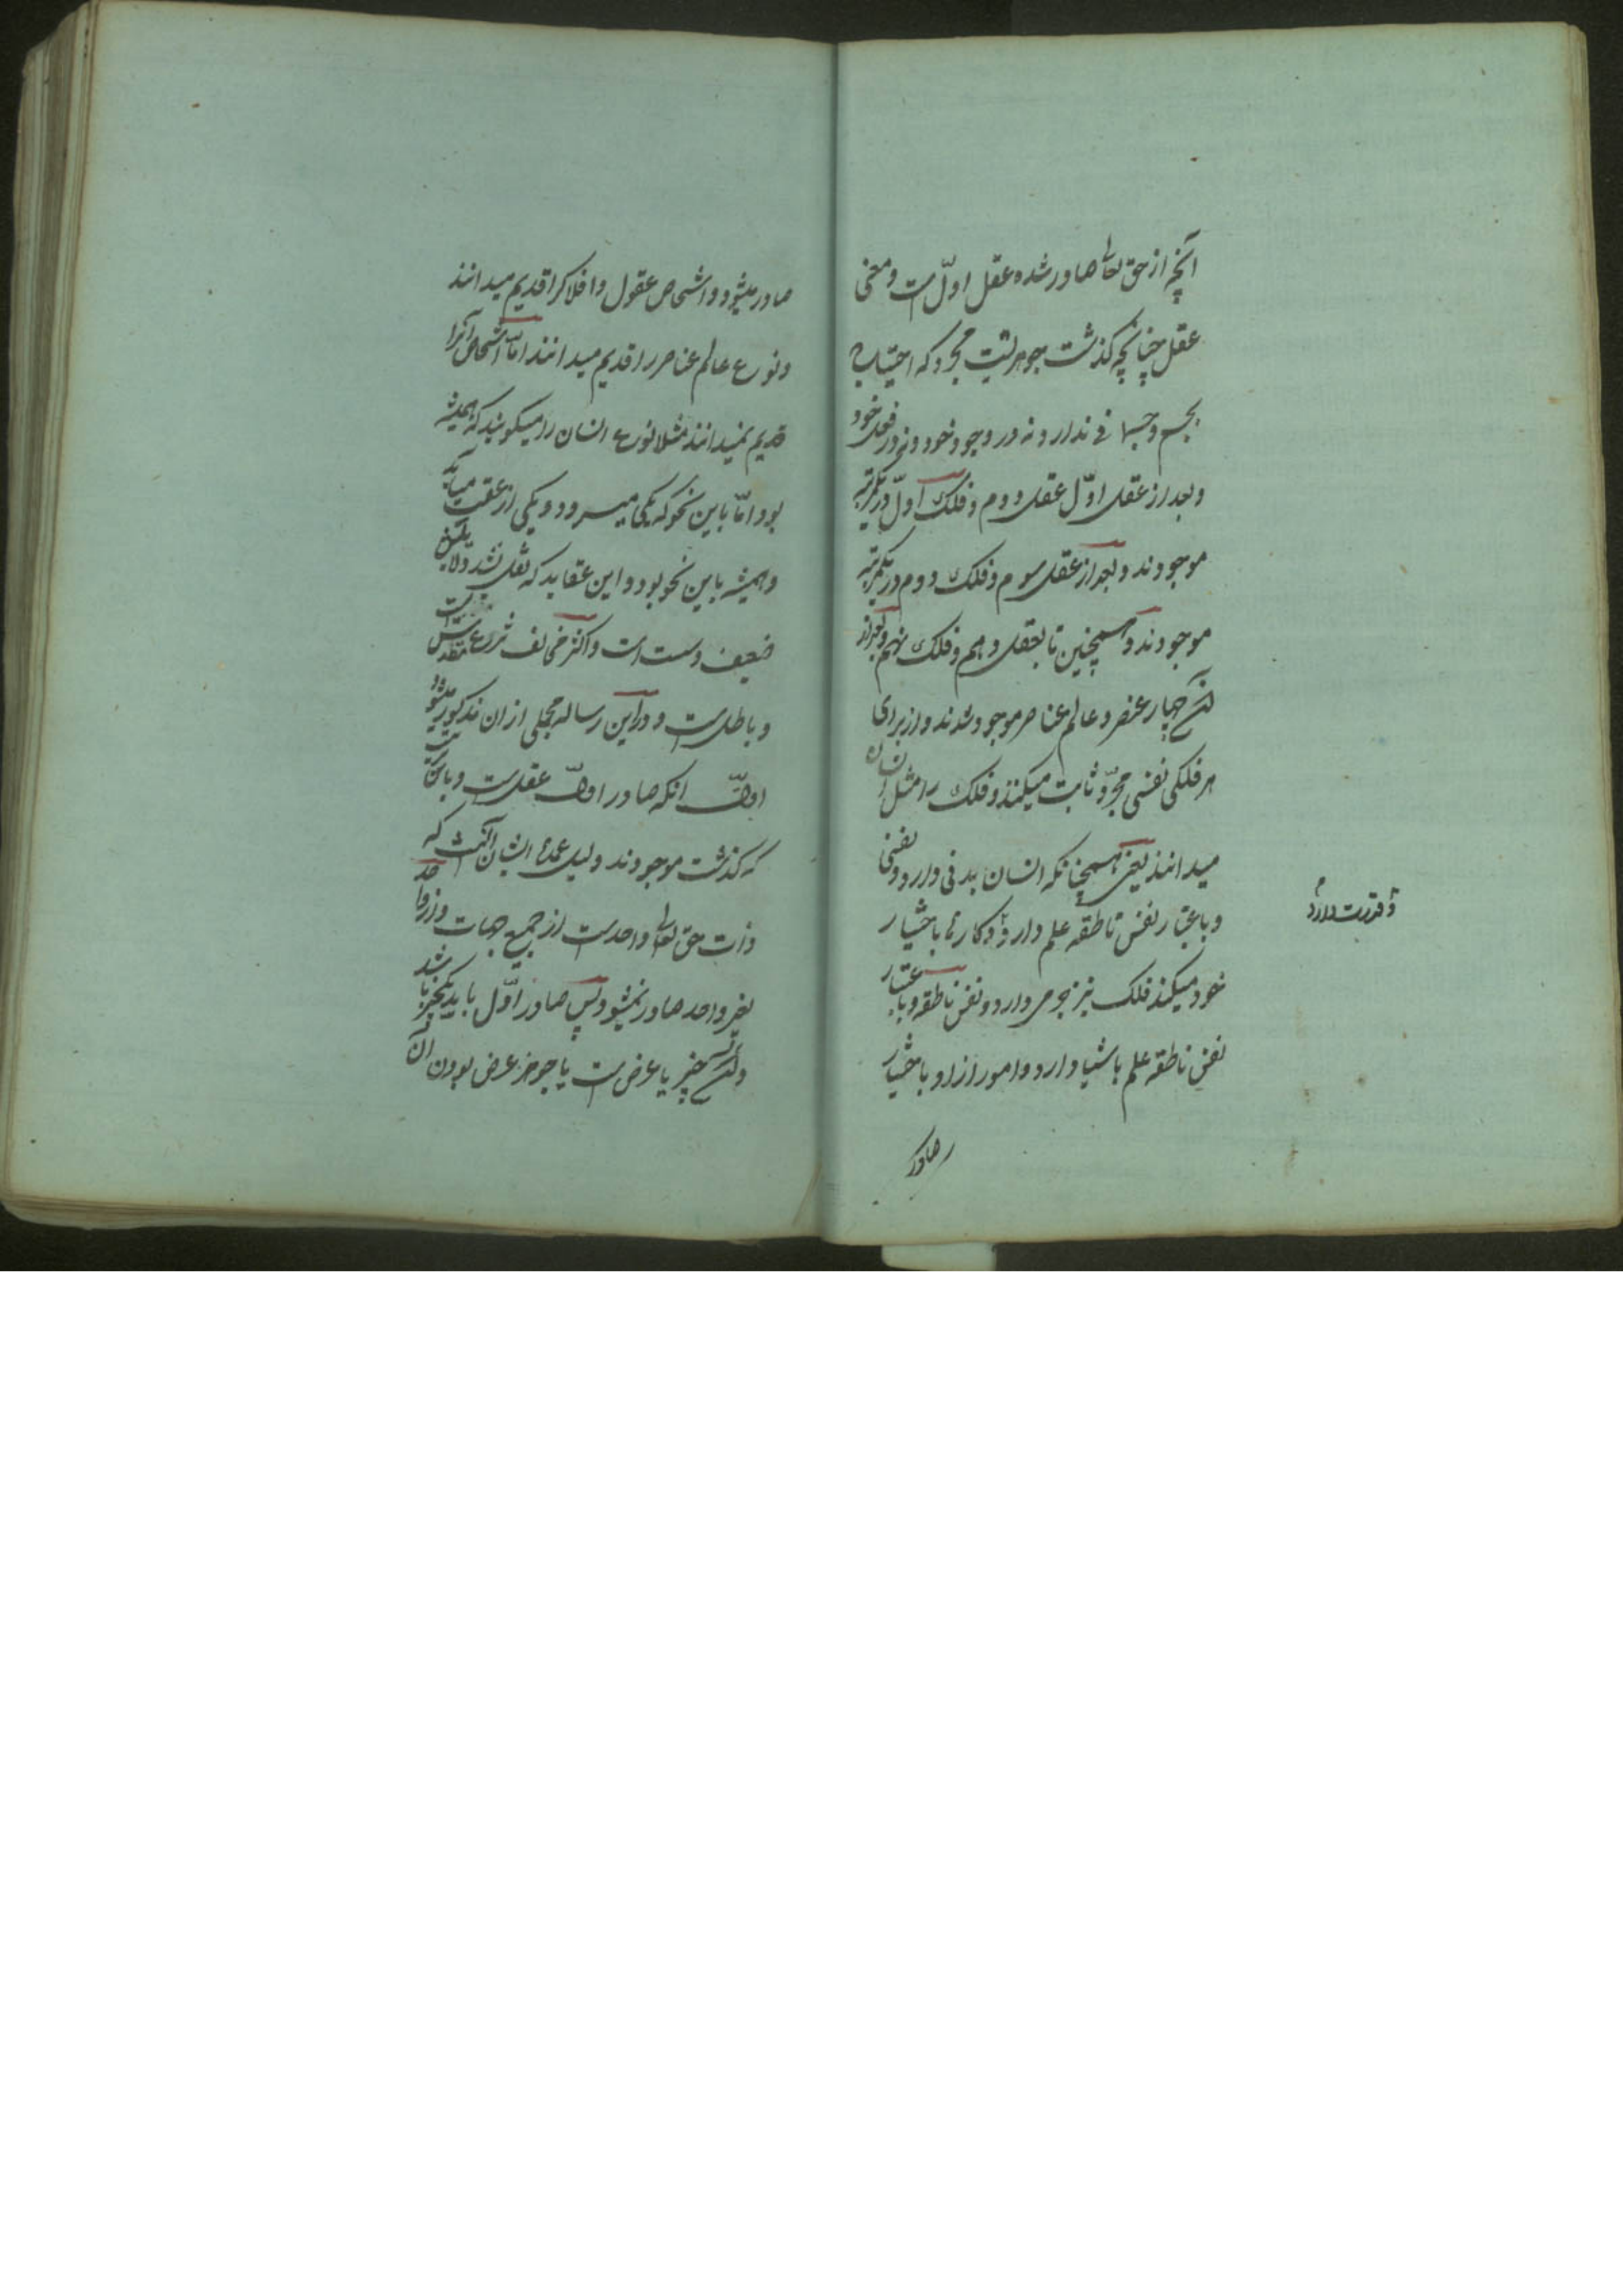 آنچه از حق تعالی صادر شده عقل اوّلست و معنی
عقل چنانچه گذشت جوهریست مجرد که احتیاج
بجسم و جسمانی ندارد نه در وجود خود و نه در فعل خود
و بعد از عقل اوّل عقل دوم و فلک اوّل در یکمرتبه
موجودند و بعد از عقل سوم و فلک دوم در یکمرتبه
موجودند و همچنین تا بعقل دهم و فلک نهم و بعد از
آن چهار عنصر و عالم عناصر موجود شدند و از برای
هر فلکی نفسی مجرّد ثابت میکنند و فلک را مثل انسان
میدانند یعنی همچنانکه انسان بدنی دارد و نفسی
و باعتبار نفس ناطقه علم دارد و کارها باختیار
و قدرت دارد
خود میکند فلک نیز جرمی دارد و نفس ناطقه و باعتبار
نفس ناطقه علم باشیا دارد و امور از او باختیار
صادر
صادر میشود و اشخاص عقول و افلاکرا قدیم میدانند
و نوع عالم عناصر را قدیم میدانند امّا اشخاص آنرا
قدیم نمیدانند مثلا نوع انسان را میگویند که همیشه
بود امّا باین نحو که یکی میرود و یکی از عقب میآید
و همیشه باین نحو بود و این عقاید که نقل شد دلایلش
ضعیف و سست است و اکثر مخالف شرع مقدس است
و باطلست و در این رساله مجملی از ان مذکور میشود
اوّل انکه صادر اوّل عقلست و باین ترتیب
که گذشت موجودند دلیل عمدهٔ ایشان آنست که
ذات حق تعالی واحدست از جمیع جهات و از واحد
بغیر واحد صادر نمیشود پس صادر اوّل باید یکچیز باشد
و آن چیز یا عرض است یا جوهر عرض بودن آن